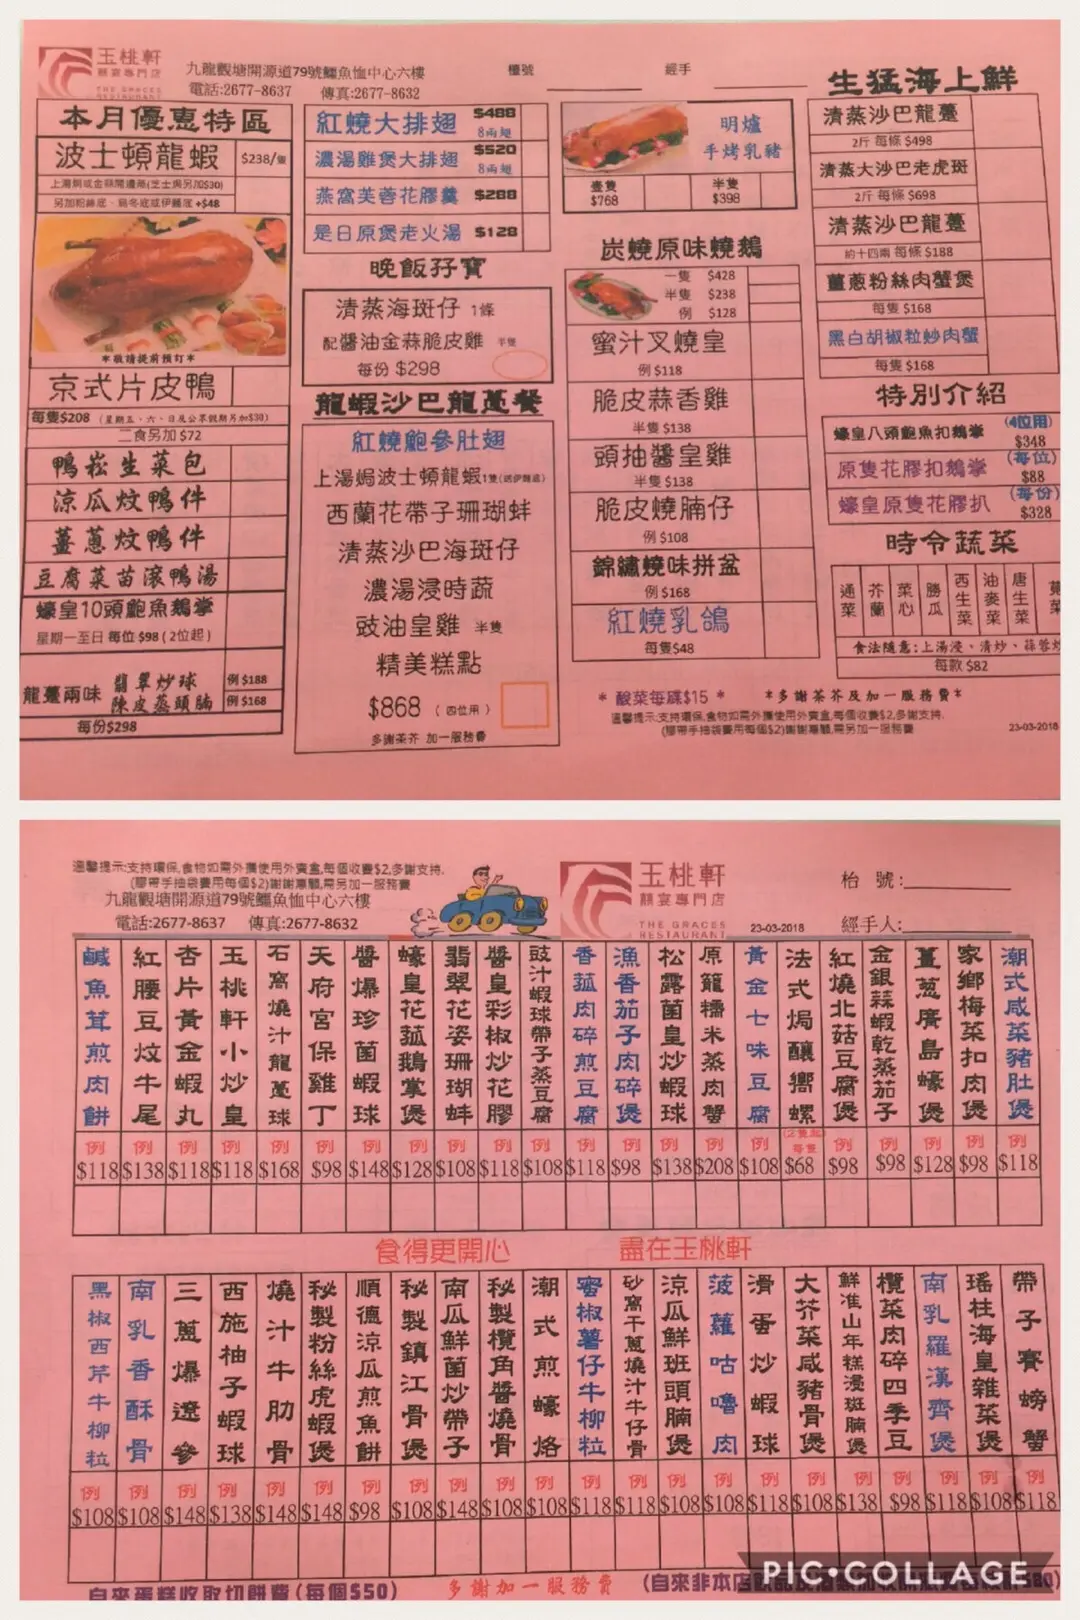 玉桃軒
囍宴專門店
THE GRACES
RESTAURANT
九龍觀塘開源道79號鱷魚恤中心六樓
電話:2677-8637 傳真:2677-8632
檯號
經手
本月優惠特區
波士頓龍蝦 $238/隻
上湯焗或金銀開邊蒸(芝士焗另加$30)
另加粉絲底、烏冬底或伊麵底 +$48
*敬請提前預訂*
京式片皮鴨
每隻$208 (星期五、六、日及公眾假期另加$30)
二食另加 $72
鴨崧生菜包
涼瓜炆鴨件
薑蔥炆鴨件
豆腐菜苗滾鴨湯
蠔皇10頭鮑魚鵝掌
星期一至日 每位 $98 (2位起)
龍躉兩味 翡翠炒球 例 $188
陳皮蒸頭腩 例 $168
每份$298
紅燒大排翅 $488 8兩翅
濃湯雞煲大排翅 $520 8兩翅
燕窩芙蓉花膠羹 $288
是日原煲老火湯 $128
晚飯孖寶
清蒸海斑仔 1條
配醬油金蒜脆皮雞 半隻
每份 $298
龍蝦沙巴龍躉餐
紅燒鮑參肚翅
上湯焗波士頓龍蝦1隻(送伊麵底)
西蘭花帶子珊瑚蚌
清蒸沙巴海斑仔
濃湯浸時蔬
豉油皇雞 半隻
精美糕點
$868 (四位用)
多謝茶芥 加一服務費
明爐
手烤乳豬
壹隻 $768 半隻 $398
炭燒原味燒鵝
一隻 $428
半隻 $238
例 $128
蜜汁叉燒皇
例 $118
脆皮蒜香雞
半隻 $138
頭抽醬皇雞
半隻 $138
脆皮燒腩仔
例 $108
錦繡燒味拼盆
例 $168
紅燒乳鴿
每隻$48
生猛海上鮮
清蒸沙巴龍躉
2斤 每條 $498
清蒸大沙巴老虎斑
2斤 每條 $698
清蒸沙巴龍躉
約十四兩 每條 $188
薑蔥粉絲肉蟹煲
每隻 $168
黑白胡椒粒炒肉蟹
每隻 $168
特別介紹
蠔皇八頭鮑魚扣鵝掌 (4位用) $348
原隻花膠扣鵝掌 (每位) $88
蠔皇原隻花膠扒 (每份) $328
時令蔬菜
通菜
芥蘭
菜心
勝瓜
西生菜
油麥菜
唐生菜
食法隨意:上湯浸、清炒、蒜蓉炒
每款 $82
* 酸菜每碟$15 * *多謝茶芥及加一服務費*
溫馨提示:支持環保,食物如需外攜使用外賣盒,每個收費$2,多謝支持.
(膠帶手抽袋費用每個$2)謝謝惠顧,需另加一服務費
23-03-2018
溫馨提示:支持環保,食物如需外攜使用外賣盒,每個收費$2,多謝支持.
(膠帶手抽袋費用每個$2)謝謝惠顧,需另加一服務費
九龍觀塘開源道79號鱷魚恤中心六樓
電話:2677-8637 傳真:2677-8632
玉桃軒
囍宴專門店
THE GRACES
RESTAURANT
23-03-2018
枱 號:
經手人:
鹹魚茸煎肉餅 例 $118
紅腰豆炆牛尾 例 $138
杏片黃金蝦丸 例 $118
玉桃軒小炒皇 例 $118
石窩燒汁龍躉球 例 $168
天府宮保雞丁 例 $98
醬爆珍菌蝦球 例 $148
蠔皇花菰鵝掌煲 例 $128
翡翠花姿珊瑚蚌 例 $108
醬皇彩椒炒花膠 例 $118
豉汁蝦球帶子蒸豆腐 例 $108
香菰肉碎煎豆腐 例 $118
漁香茄子肉碎煲 例 $98
松露菌皇炒蝦球 例 $138
原籠糯米蒸肉蟹 例 $208
黃金七味豆腐 例 $108
法式焗釀嚮螺 (2隻起) 每隻 $68
紅燒北菇豆腐煲 例 $98
金銀蒜蝦乾蒸茄子 例 $98
薑蔥廣島蠔煲 例 $128
家鄉梅菜扣肉煲 例 $98
潮式咸菜豬肚煲 例 $118
食得更開心 盡在玉桃軒
黑椒西芹牛柳粒 例 $108
南乳香酥骨 例 $108
三蔥爆遼參 例 $148
西施柚子蝦球 例 $138
燒汁牛肋骨 例 $148
秘製粉絲虎蝦煲 例 $148
順德涼瓜煎魚餅 例 $98
秘製鎮江骨煲 例 $108
南瓜鮮菌炒帶子 例 $148
秘製欖角醬燒骨 例 $108
潮式煎蠔烙 例 $108
蜜椒薯仔牛柳粒 例 $118
砂窩干蔥燒汁牛仔骨 例 $118
涼瓜鮮斑頭腩煲 例 $108
菠蘿咕嚕肉 例 $108
滑蛋炒蝦球 例 $118
大芥菜咸豬骨煲 例 $108
鮮淮山年糕浸斑腩煲 例 $138
欖菜肉碎四季豆 例 $98
南乳羅漢齊煲 例 $118
瑤柱海皇雜菜煲 例 $108
帶子賽螃蟹 例 $118
自來蛋糕收取切餅費(每個$50) 多謝加一服務費 (自來非本店
PIC•COLLAGE